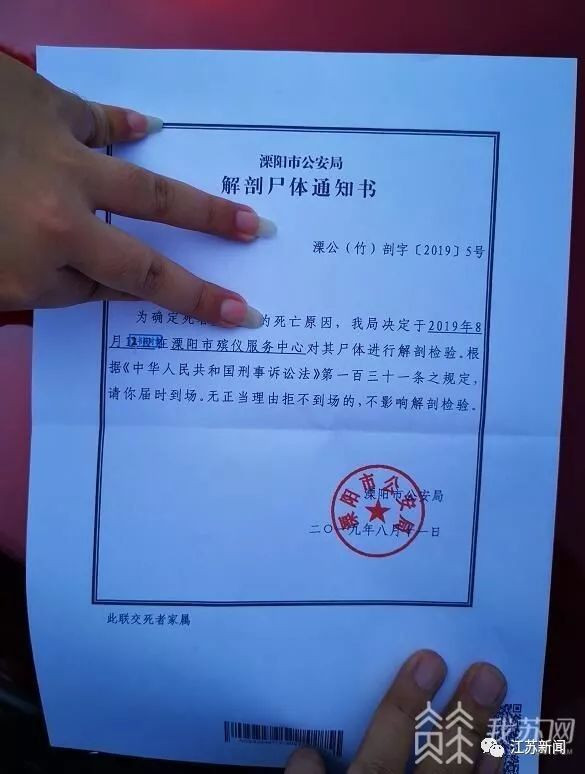 溧阳市公安局
解剖尸体通知书
溧公（竹）剖字〔2019〕5号
为确定死者的死亡原因，我局决定于2019年8
月在溧阳市殡仪服务中心对其尸体进行解剖检验。根
据《中华人民共和国刑事诉讼法》第一百三十一条之规定，
请你届时到场。无正当理由拒不到场的，不影响解剖检验。
溧阳市公安局
溧阳市公安局
二〇一九年八月十一日
此联交死者家属
我苏网
江苏新闻